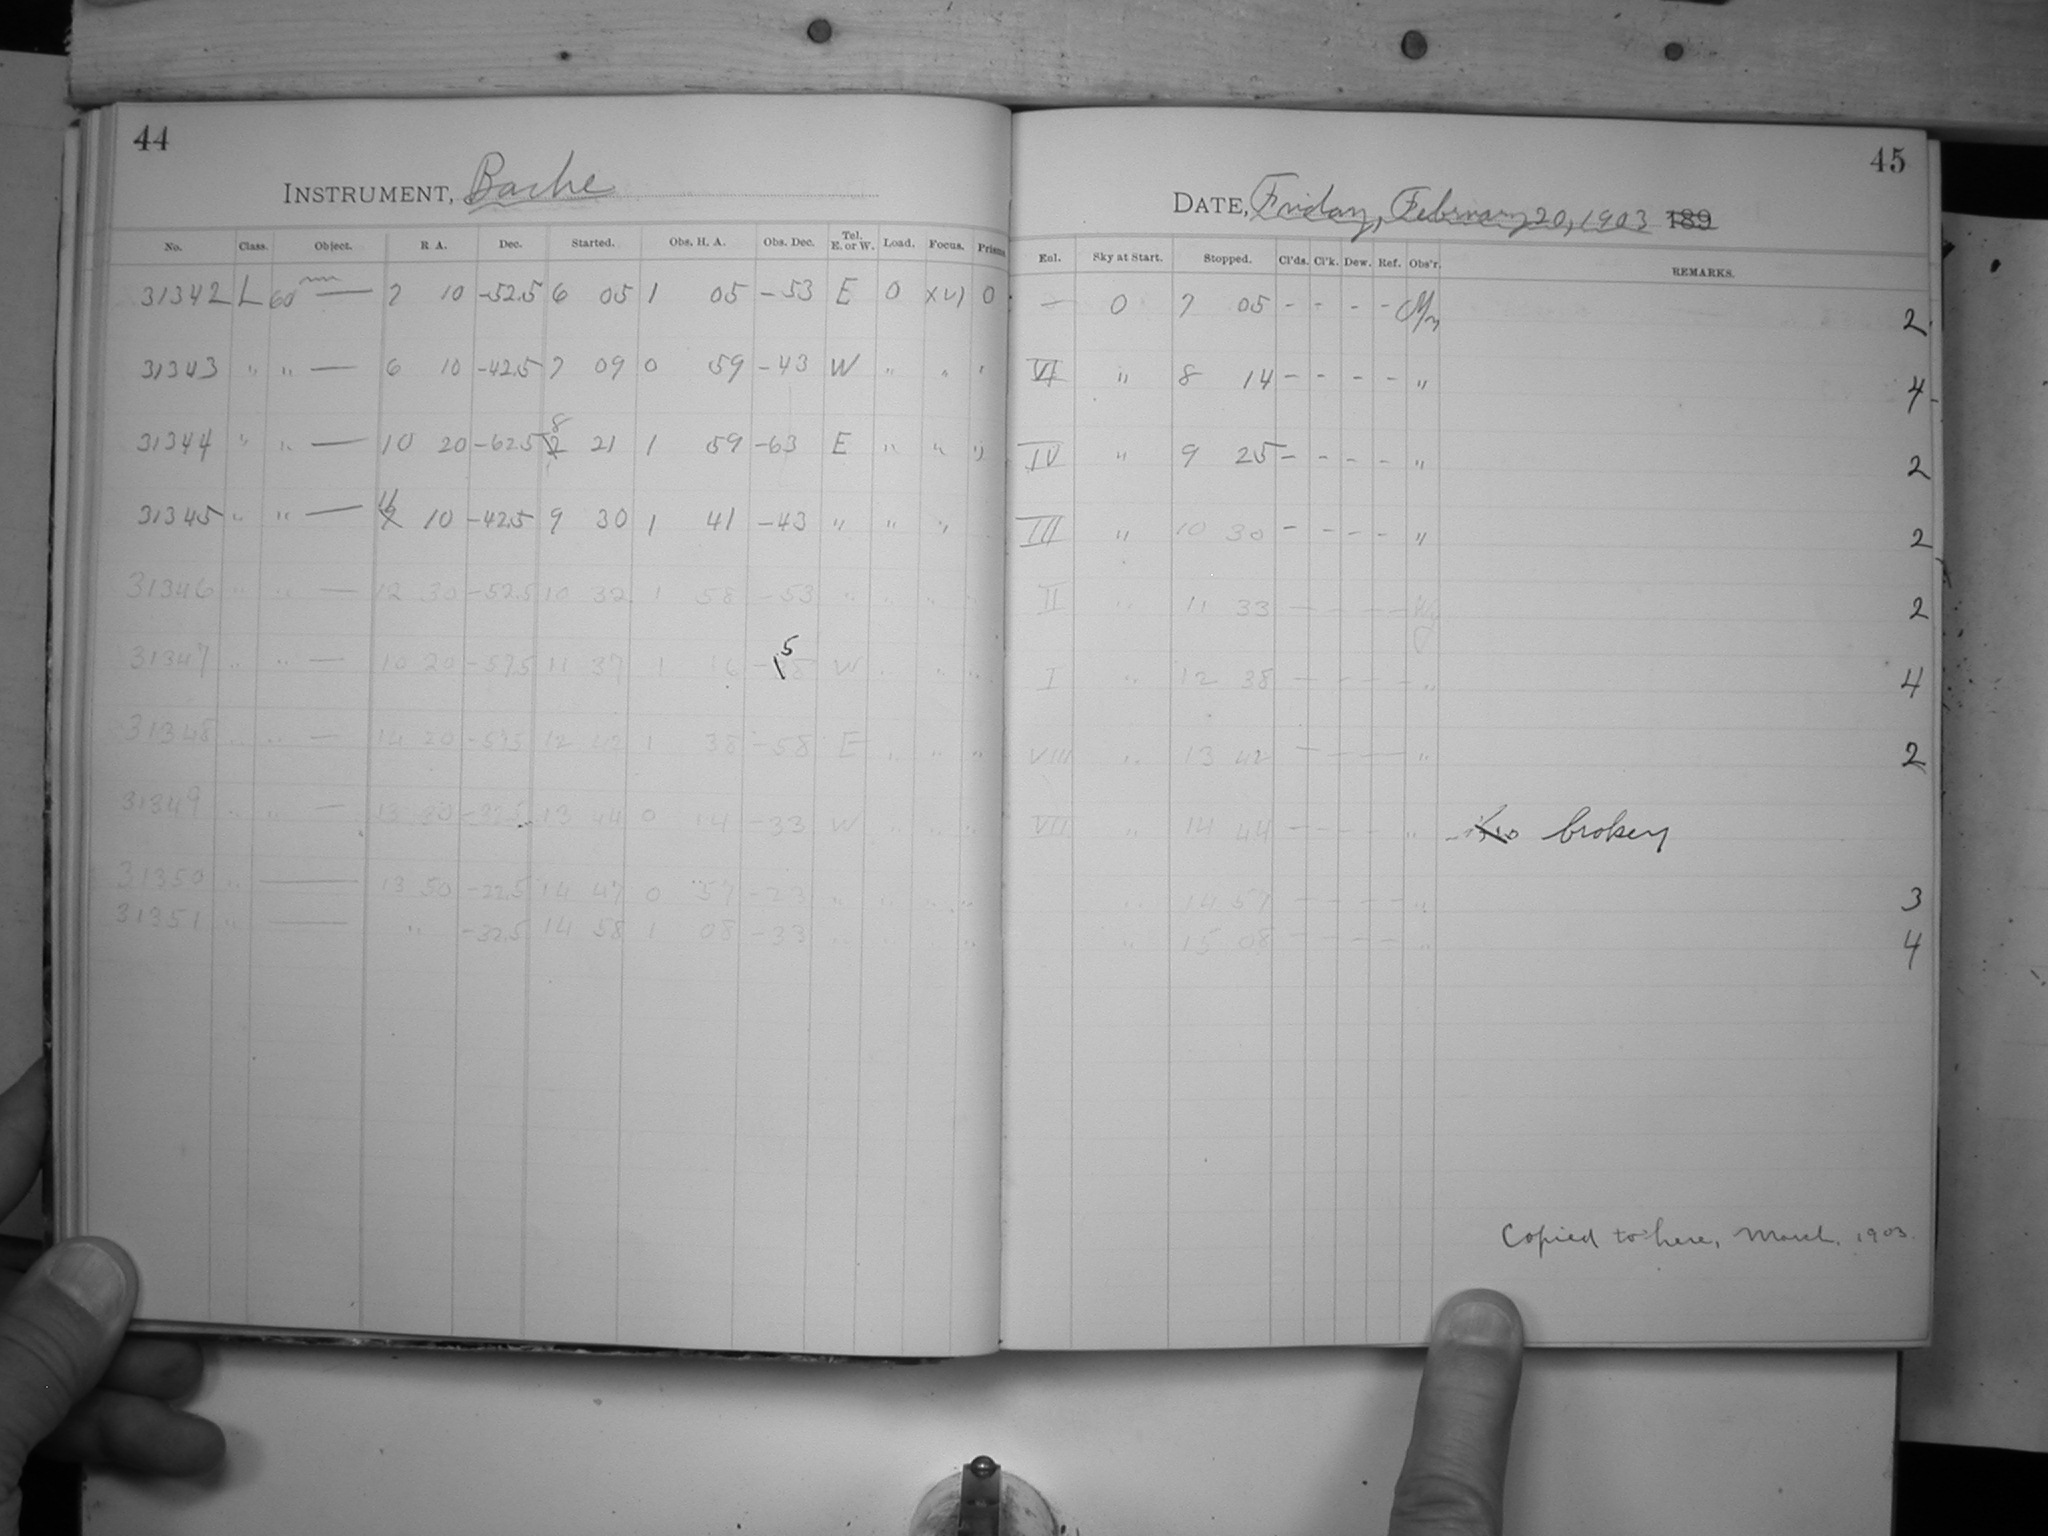 44
INSTRUMENT, Bache
No. Class. Object. R A. Dec. Started. Obs. H. A. Obs. Dec. Tel. E. or W. Load. Focus. Prisms
31342 L 60m — 7 10 -52.5 6 05 1 05 -53 E 0 xvi 0
31343 " " — 6 10 -42.5 7 09 0 59 -43 W " " "
31344 " " — 10 20 -62.5 8 21 1 59 -63 E " " "
31345 " " — 11 10 -42.5 9 30 1 41 -43 " " "
31346 " " — 12 30 -52.5 10 32 1 58 -53 " " " "
31347 " " — 10 20 -57.5 11 37 1 16 -58 5 W " " "
31348 " " — 14 20 -57.5 12 42 1 38 -58 E " " "
31349 " " — 13 30 13 44 0 14 -33 W " " "
31350 " — 13 50 -22.5 14 47 0 57 -23 " " " "
31351 " — " -32.5 14 58 1 08 -33 " " " "
45
DATE, Friday, February 20, 1903 189
Enl. Sky at Start. Stopped. Cl'ds. Cl'k. Dew. Ref. Obs'r. REMARKS.
— 0 7 05 - - - - 2
VI " 8 14 - - - - " 4
IV " 9 25 - - - - " 2
III " 10 30 - - - - " 2
II " 11 33 - - - - 2
I " 12 38 - - - - " 4
VIII " 13 42 - - - - " 2
VII " 14 44 - - - - " broken
" 14 57 - - - - " 3
" 15 08 - - - - " 4
Copied to here, March, 1903.